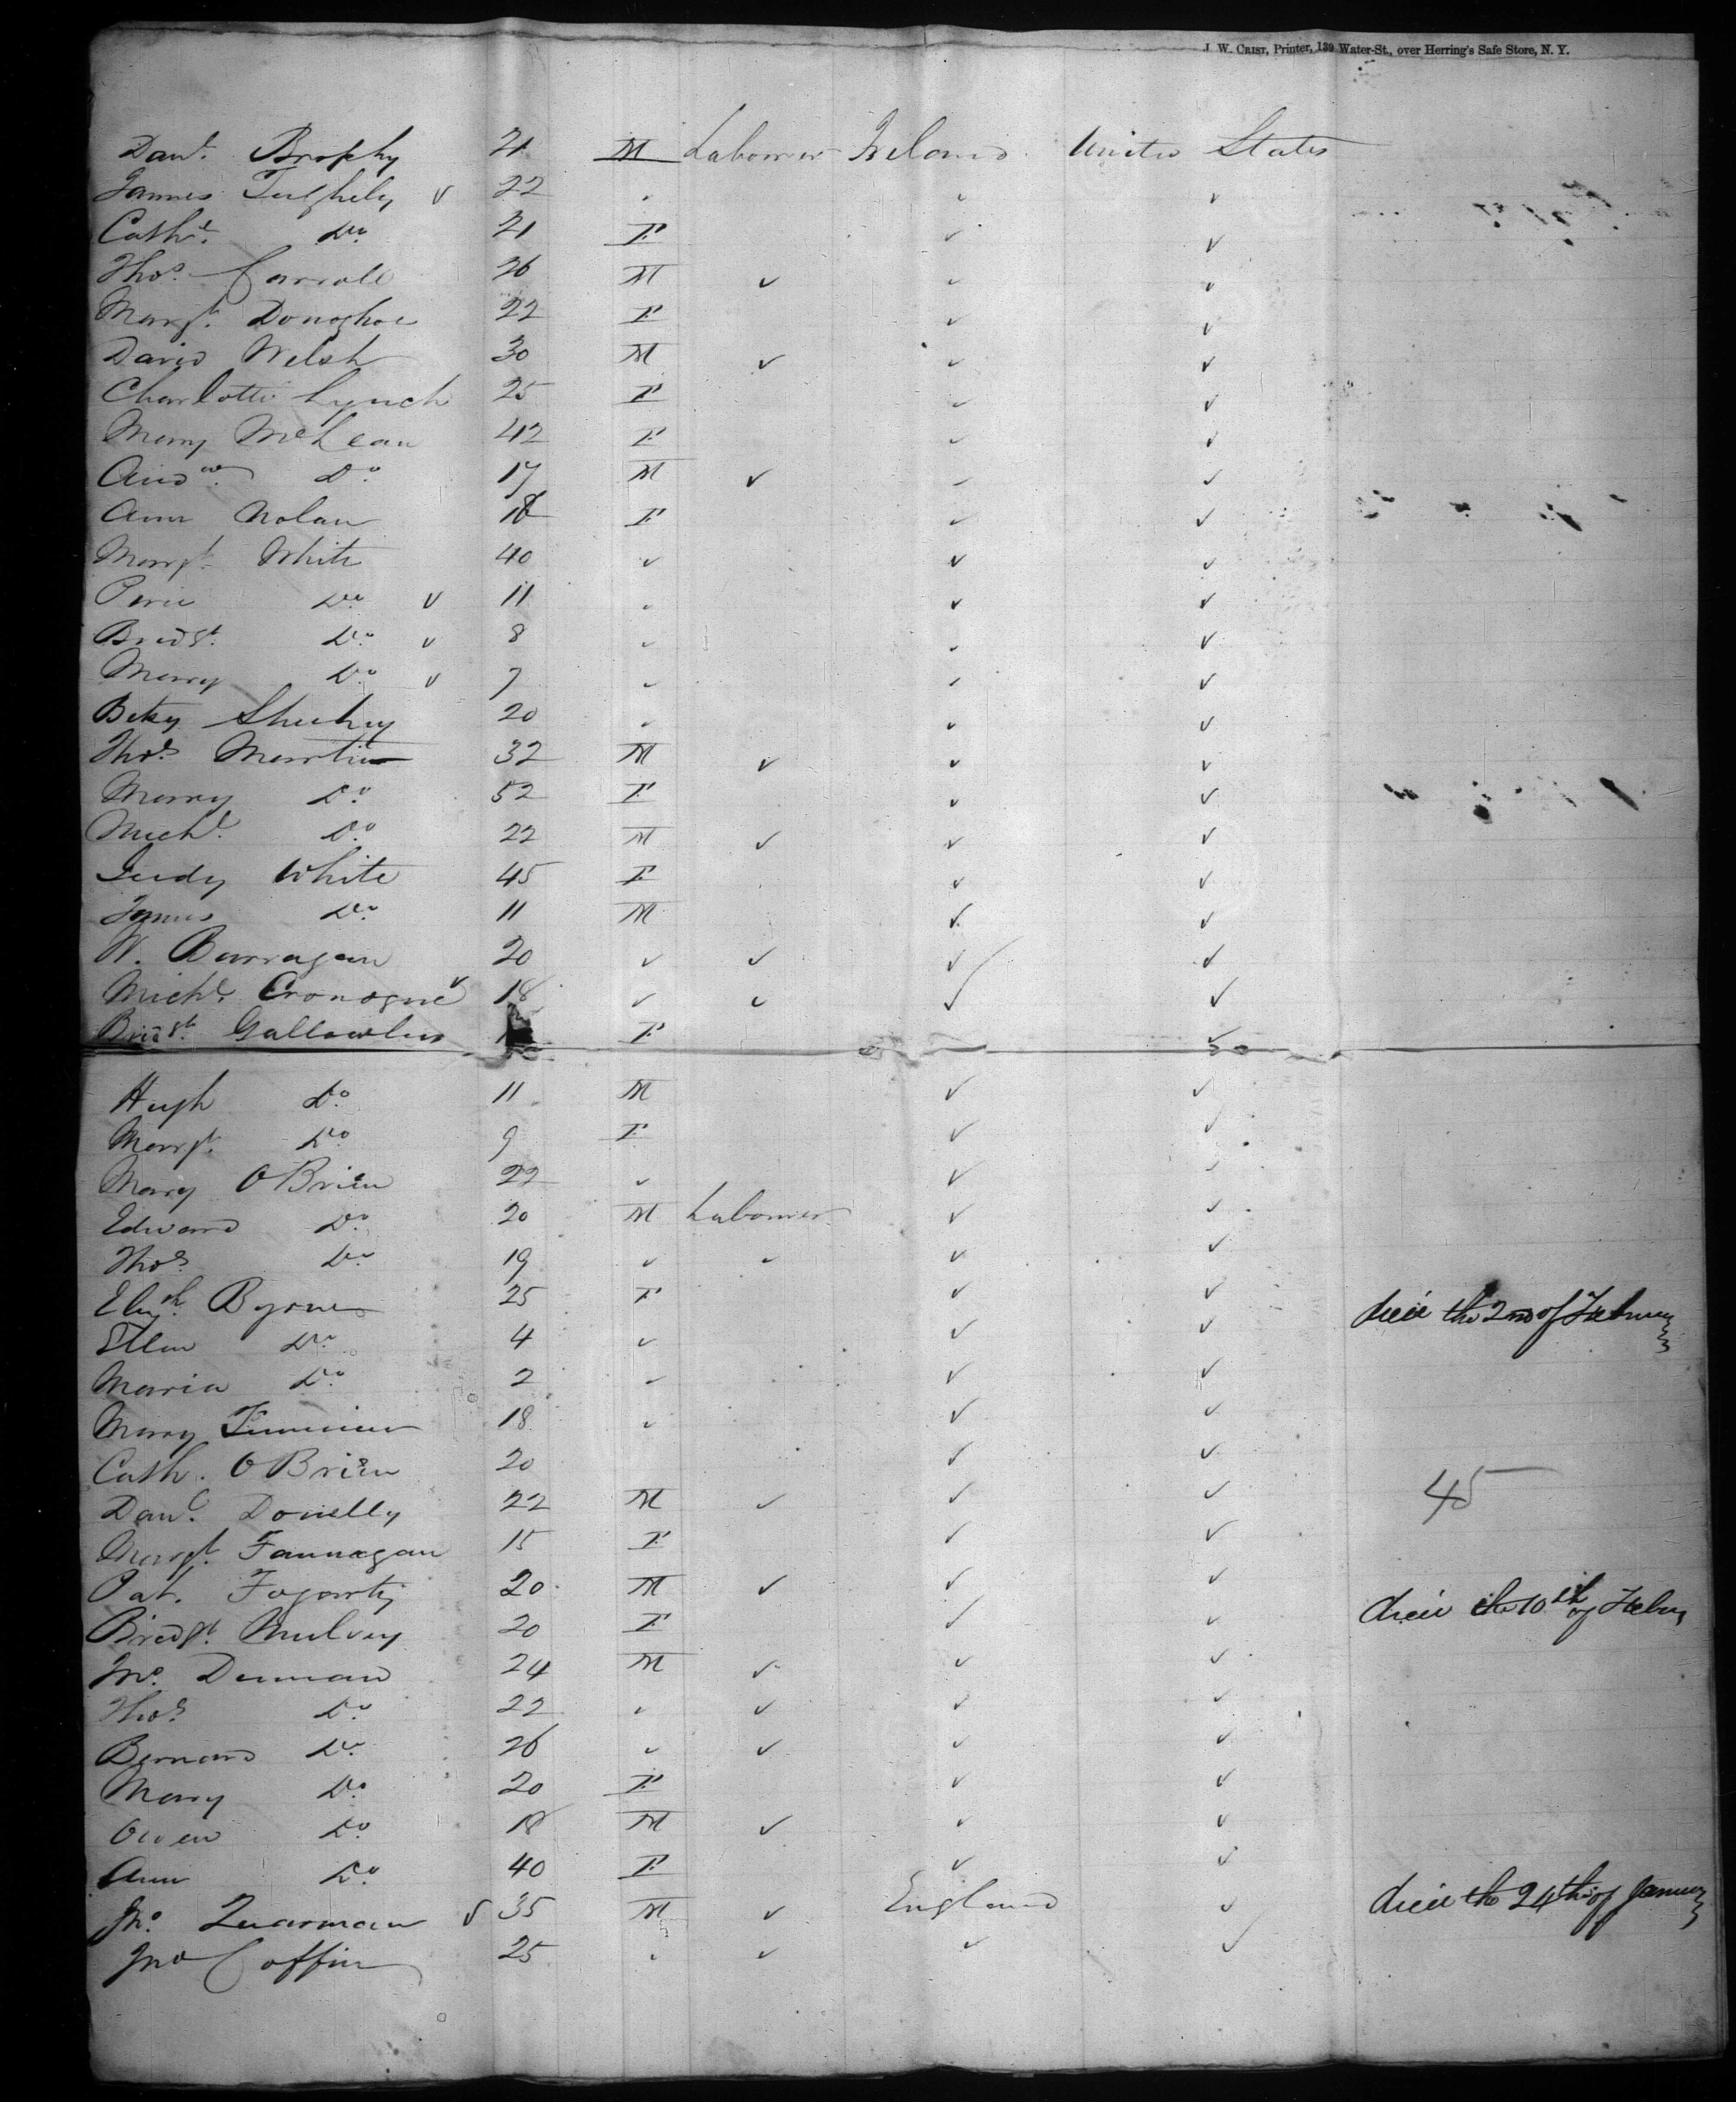 J. W. CRIST, Printer, 139 Water-St., over Herring's Safe Store, N. Y.
Danl. Brophy 21 M Labourer Ireland United States
James 22
Cathe. Do. 21 F
Thos. Carroll 26 M
Margt. Donoghoe 22 F
David Welsh 30 M
Charlotte Lynch 25 F
Mary McLean 42 F
Andw. Do. 17 M
Ann Nolan 18 F
Margt. White 40
Do. 11
Bridgt. Do. 8
Mary Do. 7
Betsy Sheehy 20
Thos. Martin 32 M
Mary Do. 52 F
Michl. Do. 22 M
Judy White 45 F
James Do. 11 M
W. Barragan 20
Michl. Cronogue 18
Bridgt. F
Hugh Do. 11 M
Margt. Do. 9 F
Mary O Brien 22
Edward Do. 20 M Labourer
Thos. Do. 19
Elizth. Byrne 25 F
Ellen Do. 4 died the 2nd of February
Maria Do. 2
Mary 18
Cath. O Brien 20
Danl. Donelly 22 M 45
Margt. Fannagan 15 F
Pat. Fogarty 20 M
Bridgt. Mulvey 20 F died the 10th of Feby
Jno. Dunnan 24 M
Thos. Do. 22
Bernard Do. 26
Mary Do. 20 F
Owen Do. 18 M
Ann Do. 40 F
Jno. Quarman 35 M England died the 24th of January
Jno Coffin 25